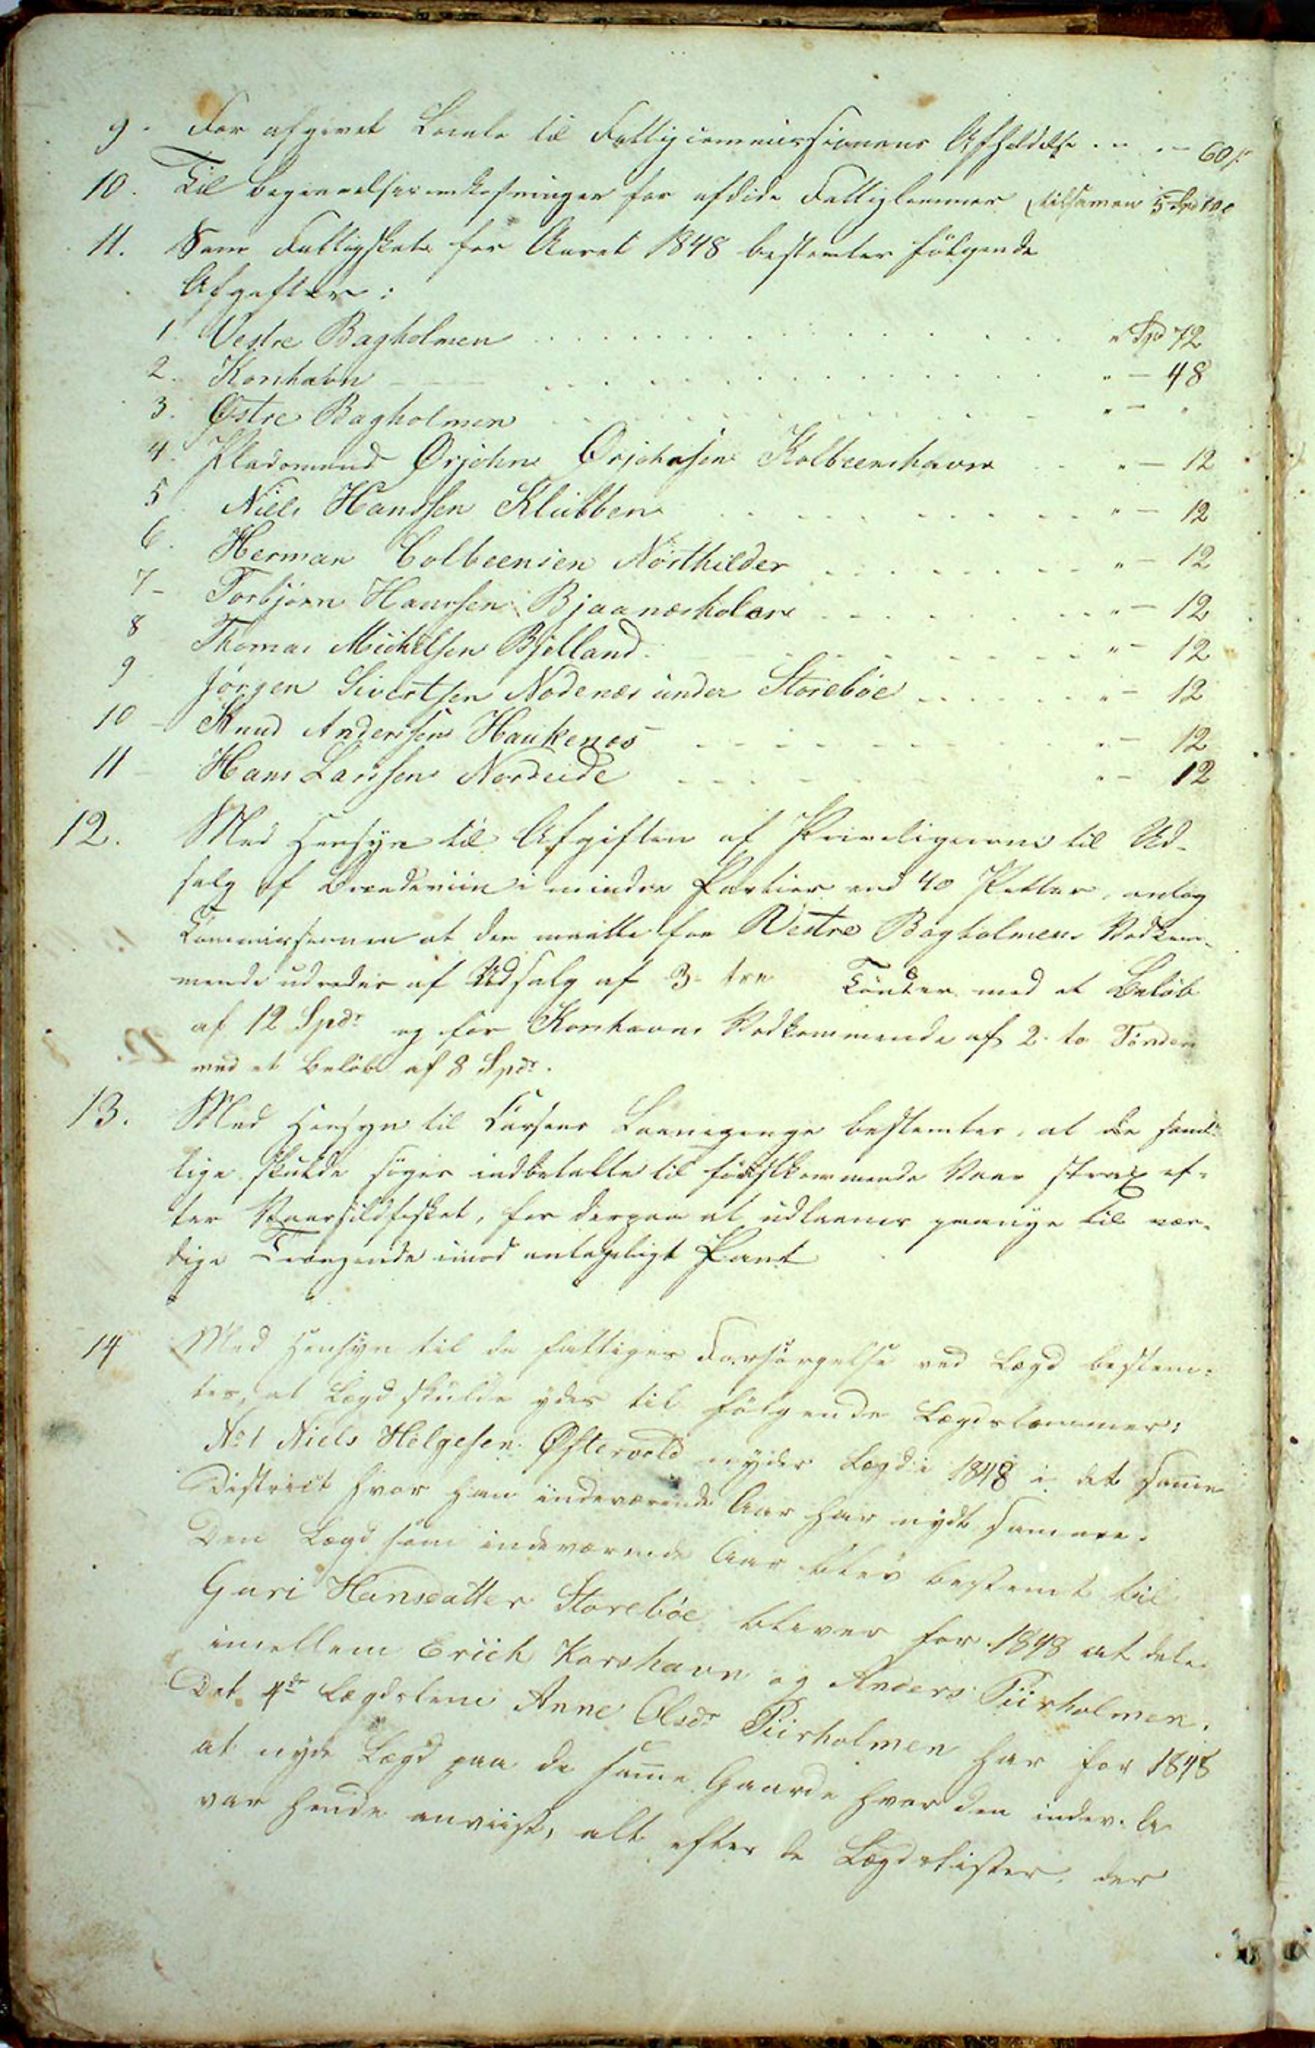 9. For afgivet Locale til Fattigcommissionens Afholdelse . . . — 60 s
10. Til begravelsesomkostninger for afdøde Fattiglemmer tilsamen 5 Spd
11. Som Fattigskat for Aaret 1848 bestemtes følgende
Afgifter:
1. Vestre Bagholmen . . . " Spd 72
2. Korshavn — . . . " — 48
3. Østre Bagholmen . . . " — "
4. Pladsmand Ørjohn Ørjohnsen Kolbeenshavn . . " — 12
5 Niels Hanssen Klubben . . . " — 12
6. Herman Colbeensen Nørthilder . . . " — 12
7 – Torbjørn Hanssen Bjaanæsholm . . . " — 12
8 Thomas Michelsen Bjelland . . . " — 12
9 Jørgen Sivertsen Nodenæs under Storebøe . . . " — 12
10 – Knud Anderssen Haukenæs . . . " — 12
11 – Hans Larssen Nordeide . . . " — 12
12. Med Hensyn til Afgiften af Priveligierne til Ud-
salg af Brændeviin i mindre Partier end 40 Potter, antog
Commissionen at den maatte for Vestre Bagholmens Vedkom-
mende udredes af Udsalg af 3 – tre Tønder med et Beløb
af 12 Spdr og for Korshavns Vedkommende af 2 – to Tønder
med et Beløb af 8 Spdr.
13. Med Hensyn til Cassens Laanepenge bestemtes, at de samt-
lige skulde søges indbetalte til førstkommende Vaar strax ef-
ter Vaarsildfisket, for derpaa at udlaanes paanye til vær-
dige Trængende imod antageligt Pant
14 Med Hensyn til de fattiges Forsørgelse ved Lægd bestem-
tes, at Lægd skulde ydes til følgende Lægdslemmer:
No 1 Niels Helgesen Østervold nyder Lægd i 1848 i det samme
District hvor han indeværende Aar har nydt samme.
Den Lægd som indeværende Aar blev bestemt til
Guri Hansdatter Storebøe bliver for 1848 at dele
imellem Erich Korshavn og Anders Piirholmen.
Det 4de Lægdslem Anne Olsdr Piirholmen har for 1848
at nyde Lægd paa de samme Gaarde hvor den indev. A
var hende anviist, alt efter de Lægdslister, der